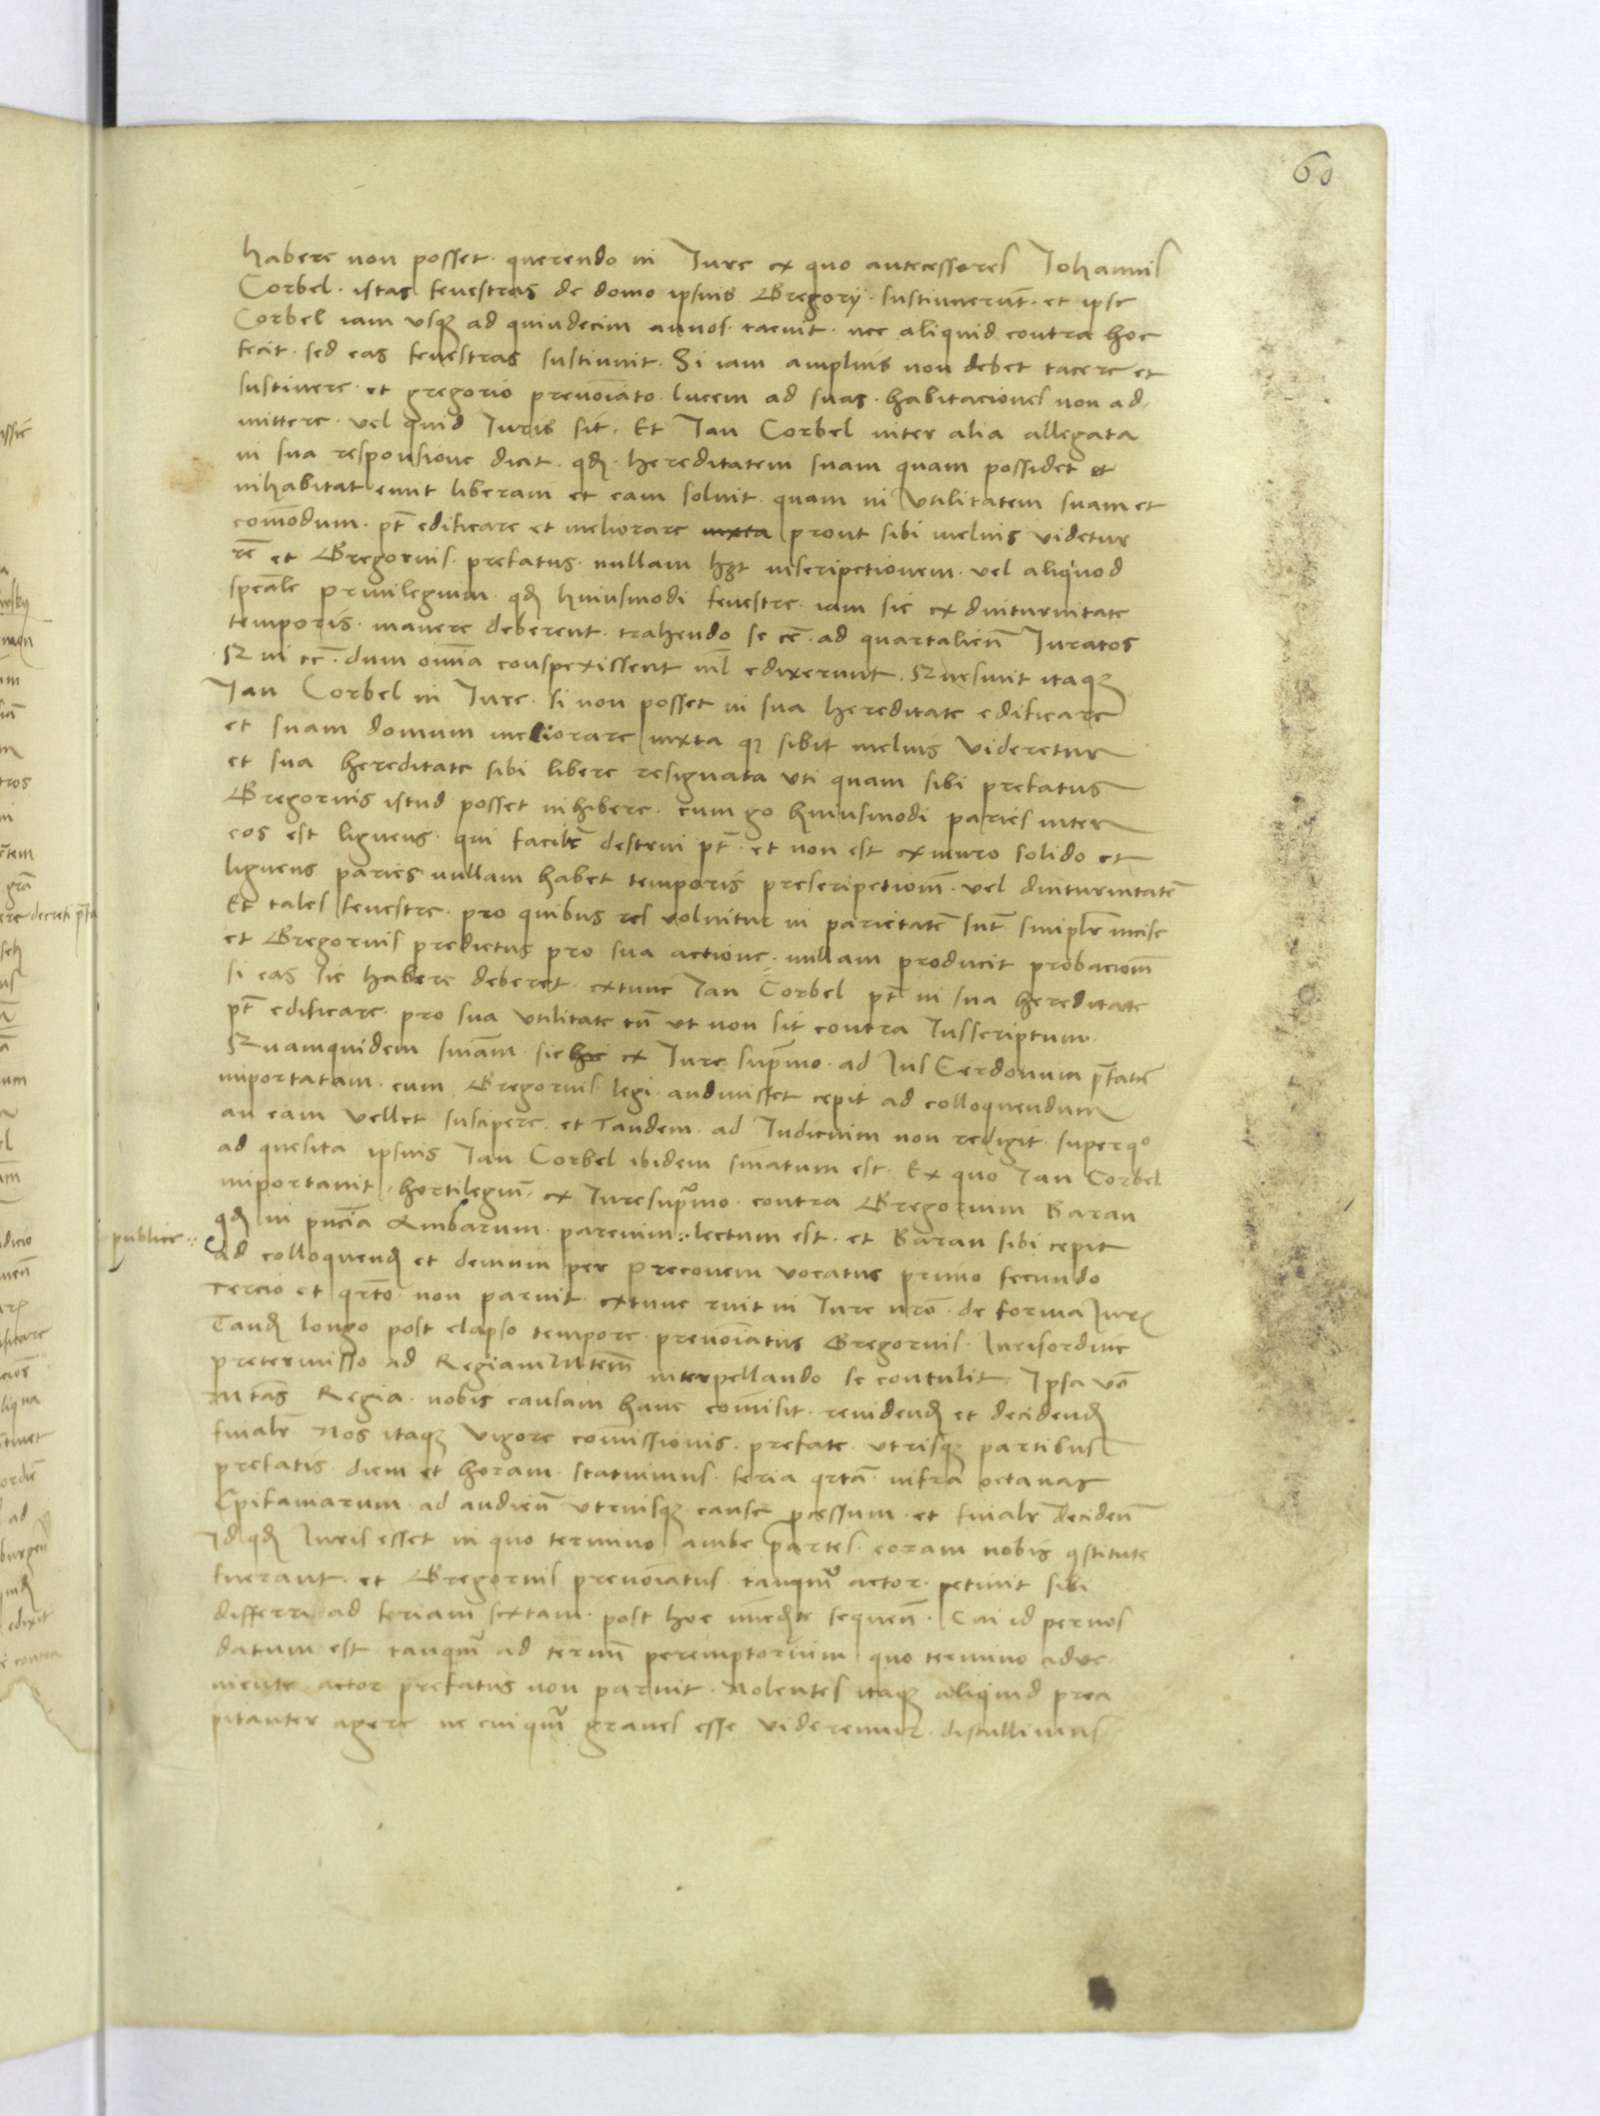 60
habere non posset. querendo in Jure ex quo antecessores Johannis
Corbel. istas fenestras de domo ipsius Gregorij. sustinuerut̄. et ipse
Corbel iam usq3 ad quindecim annos. tacuit. nec aliquid contra hoc
fecit. sed eas fenestras sustinuit. Si iam amplius non debet tacere et
sustinere. et gregorio prenoīato. lucem ad suas. habitaciones non ad
mittere. vel quid Juris sit. Et Jan Corbel inter alia allegata
in sua responsione dicit. qđ. hereditatem suam quam possidet et
inhabitat emit liberam et eam soluit. quam in Utilitatem suam et
com̄odum. pt̄ edificare et meliorare iuxta prout sibi melius videtur
et Gregorius. prefatus. nullam h3t inscripcionem. vel aliquod
speāle priuilegium. qđ huiusmodi fenestre. iam sic ex diuturnitate
temporis. manere deberent. trahendo se ad quartalien̄ Juratos
Qui dum om̄ia conspexissent nil edixerunt. Quesiuit itaq3
Jan Corbel in Jure. si non posset in sua hereditate edificare
et suam domum meliorare iuxta sibit melius videretur
et sua hereditate sibi libere resignata uti quam sibi prefatus
Gregorius istud posset inhibere. cum go huiusmodi paries inter
eos est ligneus. qui facilē destrui pt̄. et non est ex muro solido et
ligneus paries nullam habet temporis prescripcionem̄. vel diuturnitatē
Et tales fenestre. pro quibus res voluitur in parietatē sut̄ simplr̄ incise
et Gregorius predictus pro sua actione. nullam producit probacionem̄
si eas sic habere deberet. extunc Jan Corbel pt̄ in sua hereditate
pt̄ edificare. pro sua Utilitate tn̄ ut non sit contra Jusscriptum.
Quamquidem sn̄iam. sic hic ex Jure sup̄mo. ad Jus Cerdonum
importatam. cum Gregorius legi. audiuisset cepit ad colloquendum
an eam vellet suscipere. et Tandem. ad Judicium non redigit. superqo
ad quesita ipsius Jan Corbel ibidem sn̄iatum est. Ex quo Jan Corbel
importauit. hortilegiū. ex Jure sup̄mo. contra Gregorium Baran
publice ::
qđ in pn̄cia Ambarum. parcium :: lectum est. et Baran sibi cepit
ad colloquenđ et demum per preconem vocatus primo secundo
Tercio et qrto. non paruit. extunc ruit in Jure nr̄o. de forma Jur̄
Tanđ longo post elapso tempore. prenoīatus Gregorius. Jurisordine
pretermisso ad Regiam Mtem̄ interpellando se contulit. Ipsa vō
Mtas̄ Regia. nobis causam hanc com̄isit. reuidenđ et decidenđ
finalr̄ Nos itaq3 Vigore com̄issionis. prefate. utrisq3 partibus
prefatis. diem et horam. statuimus. feria qrtā. infra octauas
Epifaniarum. ad audien̄ utriusq3 cause pcessum. et finalr̄ deciden̄
Id qđ Juris esset in quo termino ambe partes. coram nobis 9stitute
fuerant. et Gregorius prenoīatus. tanqm̄ actor. petiuit sibi
differri ad feriam sextam. post hoc īmedīte sequen̄. Cui id per nos
datum est. tanqm̄ ad termn̄ peremptorium quo termino adue
niente. actor prefatus non paruit. Nolentes itaq3 aliquid preci
pitanter agere. ne cuiqm̄ graues esse videremur. distulimus